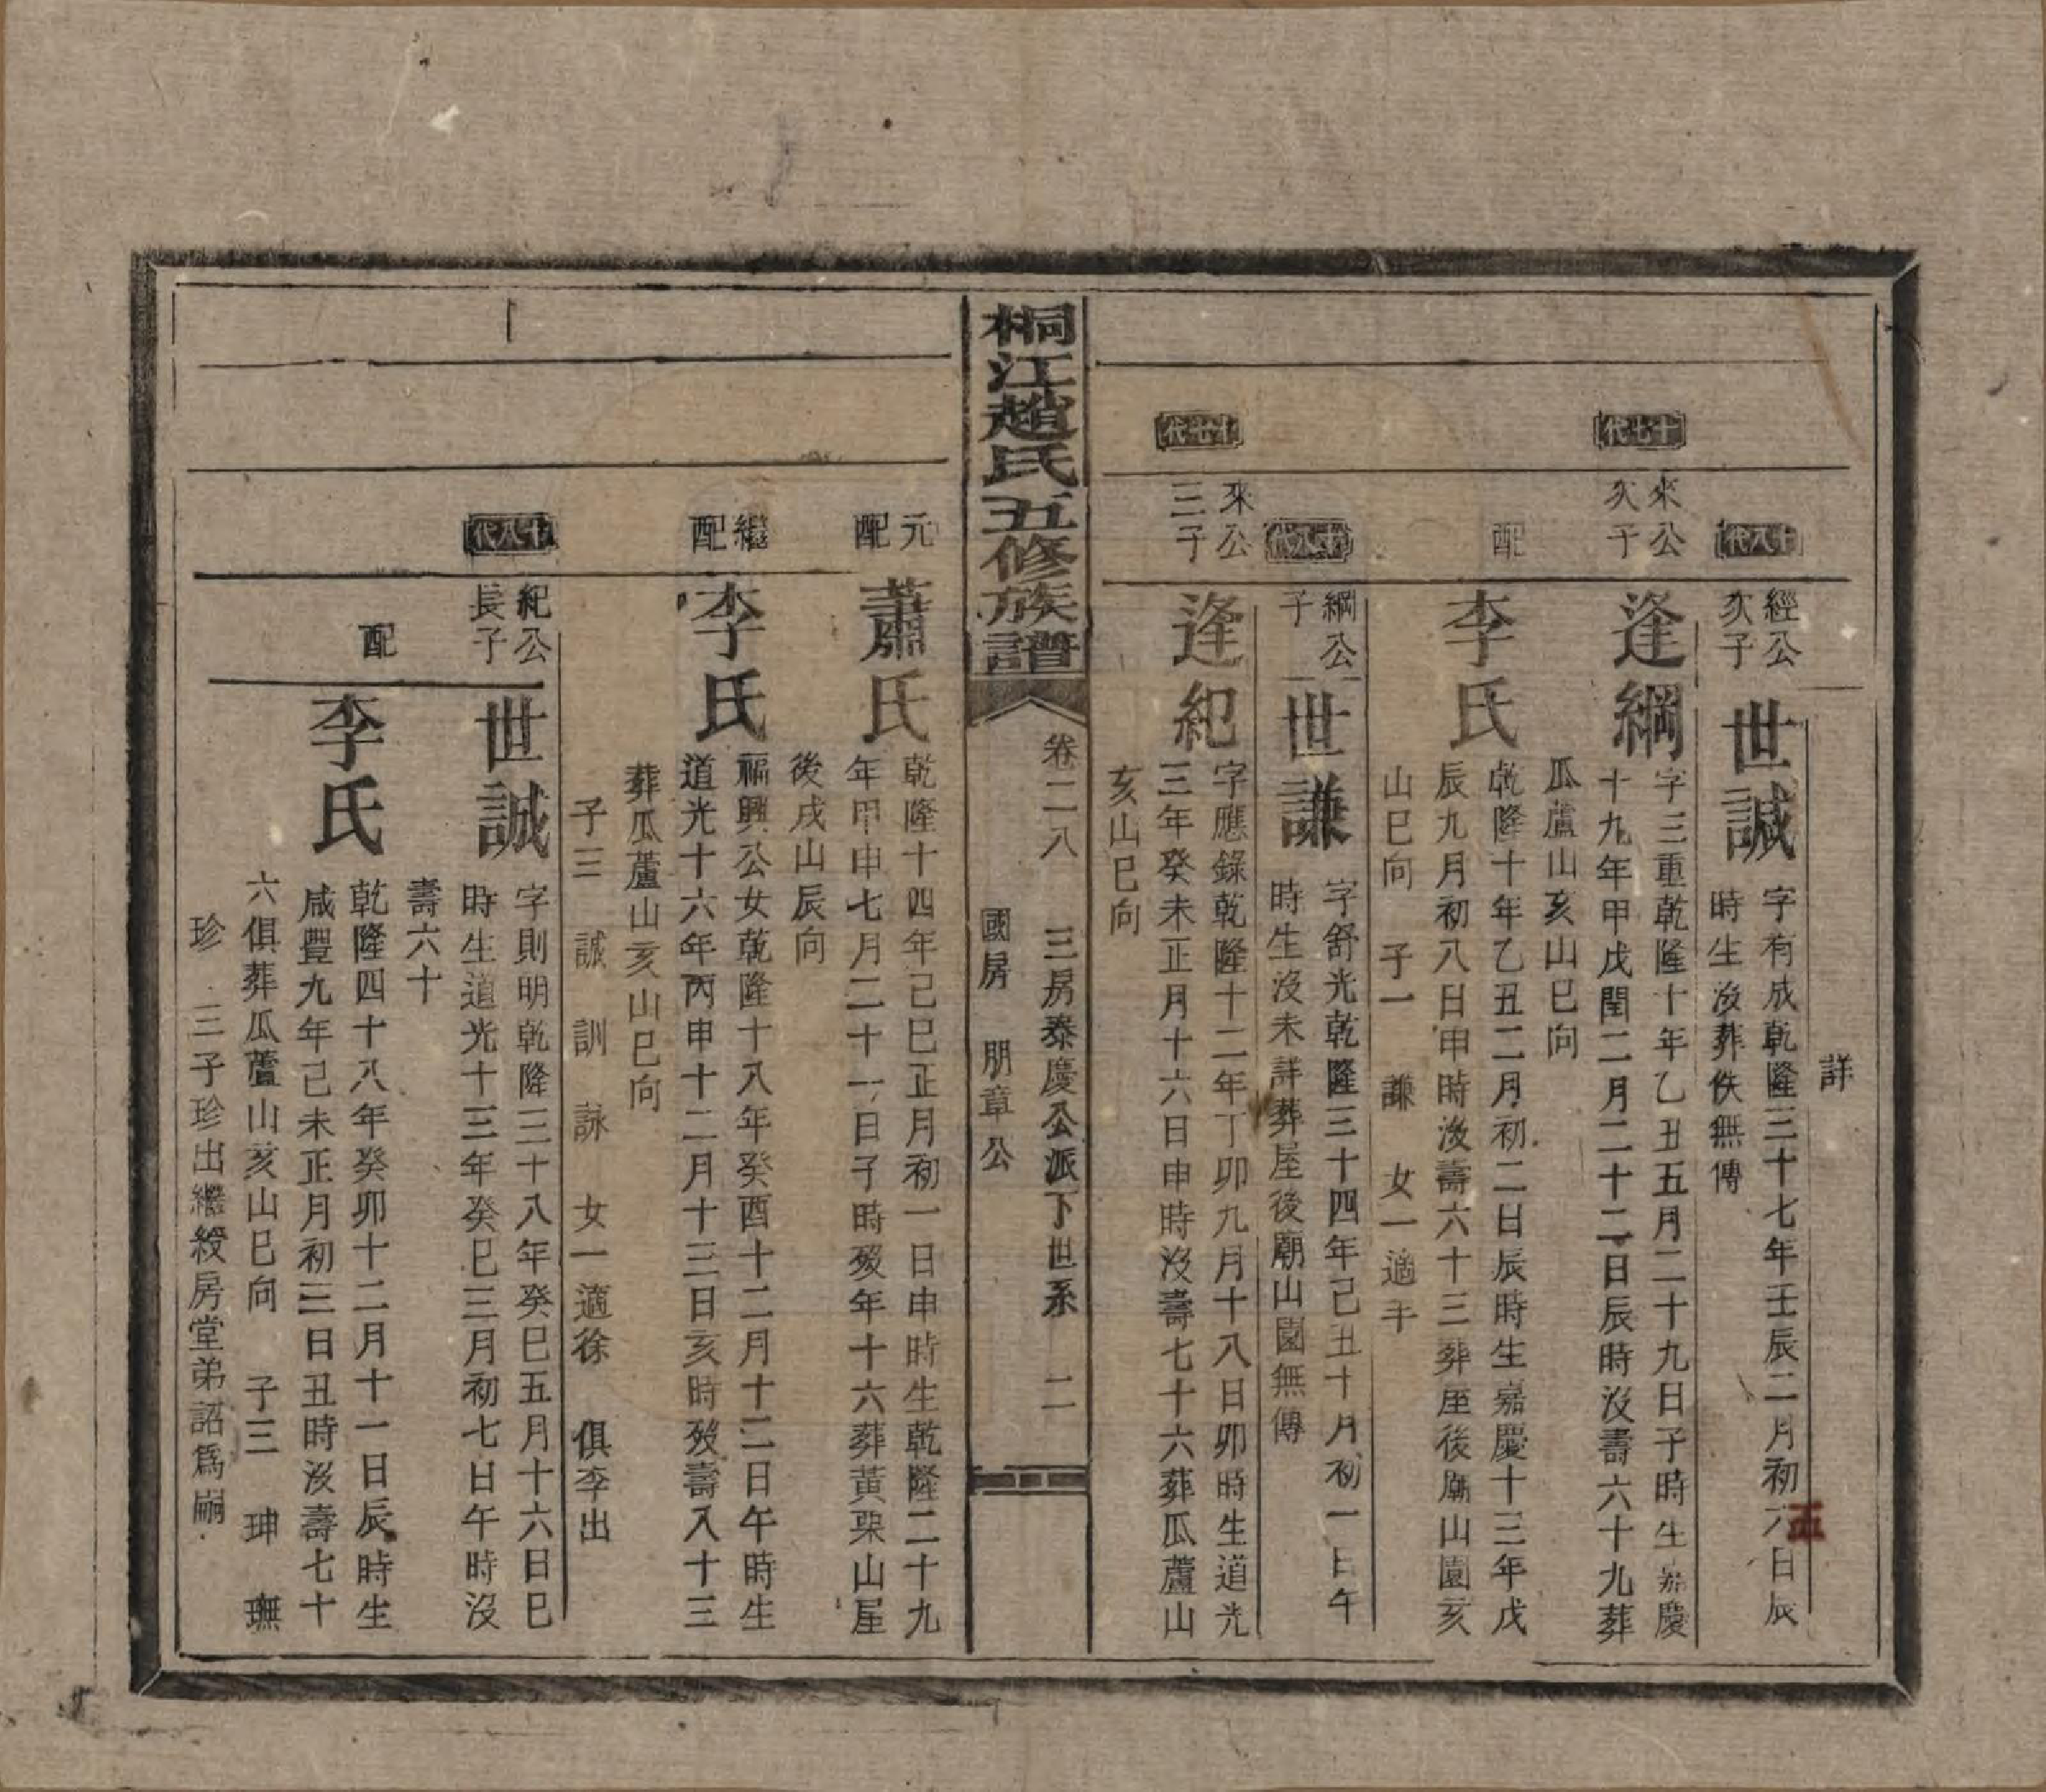 詳
十八代
經公
次子
世諴
字有成乾隆三十七年壬辰二月初六日辰
時生沒葬佚無傳
十七代
來公
次子
逢綱
字三重乾隆十年乙丑五月二十九日子時生嘉慶
十九年甲戌閏二月二十二日辰時沒壽六十九葬
瓜蘆山亥山巳向
配
李氏
乾隆十年乙丑二月初二日辰時生嘉慶十三年戊
辰九月初八日申時沒壽六十三葬屋後廟山園亥
山巳向 子一 謙 女一適平
十八代
綱公
子
世謙
字舒光乾隆三十四年己丑十月初一日午
時生沒未詳葬屋後廟山園無傳
十七代
來公
三子
逢紀
字應錄乾隆十二年丁卯九月十八日卯時生道光
三年癸未正月十六日申時沒壽七十六葬瓜蘆山
亥山巳向
桐江趙氏五修族譜
卷二八 三房泰慶公派下世系 二
國房 朋章公
元
配
蕭氏
乾隆十四年己巳正月初一日申時生乾隆二十九
年甲申七月二十一日子時歿年十六葬黃栗山屋
後戌山辰向
繼
配
李氏
福興公女乾隆十八年癸酉十二月十二日午時生
道光十六年丙申十二月十三日亥時歿壽八十三
葬瓜蘆山亥山巳向
子三 誠 訓 詠 女一適徐 俱李出
十八代
紀公
長子
世誠
字則明乾隆三十八年癸巳五月十六日巳
時生道光十三年癸巳三月初七日午時沒
壽六十
配
李氏
乾隆四十八年癸卯十二月十一日辰時生
咸豐九年己未正月初三日丑時沒壽七十
六俱葬瓜蘆山亥山巳向 子三 珅 璑
珍 三子珍出繼綬房堂弟詔爲嗣